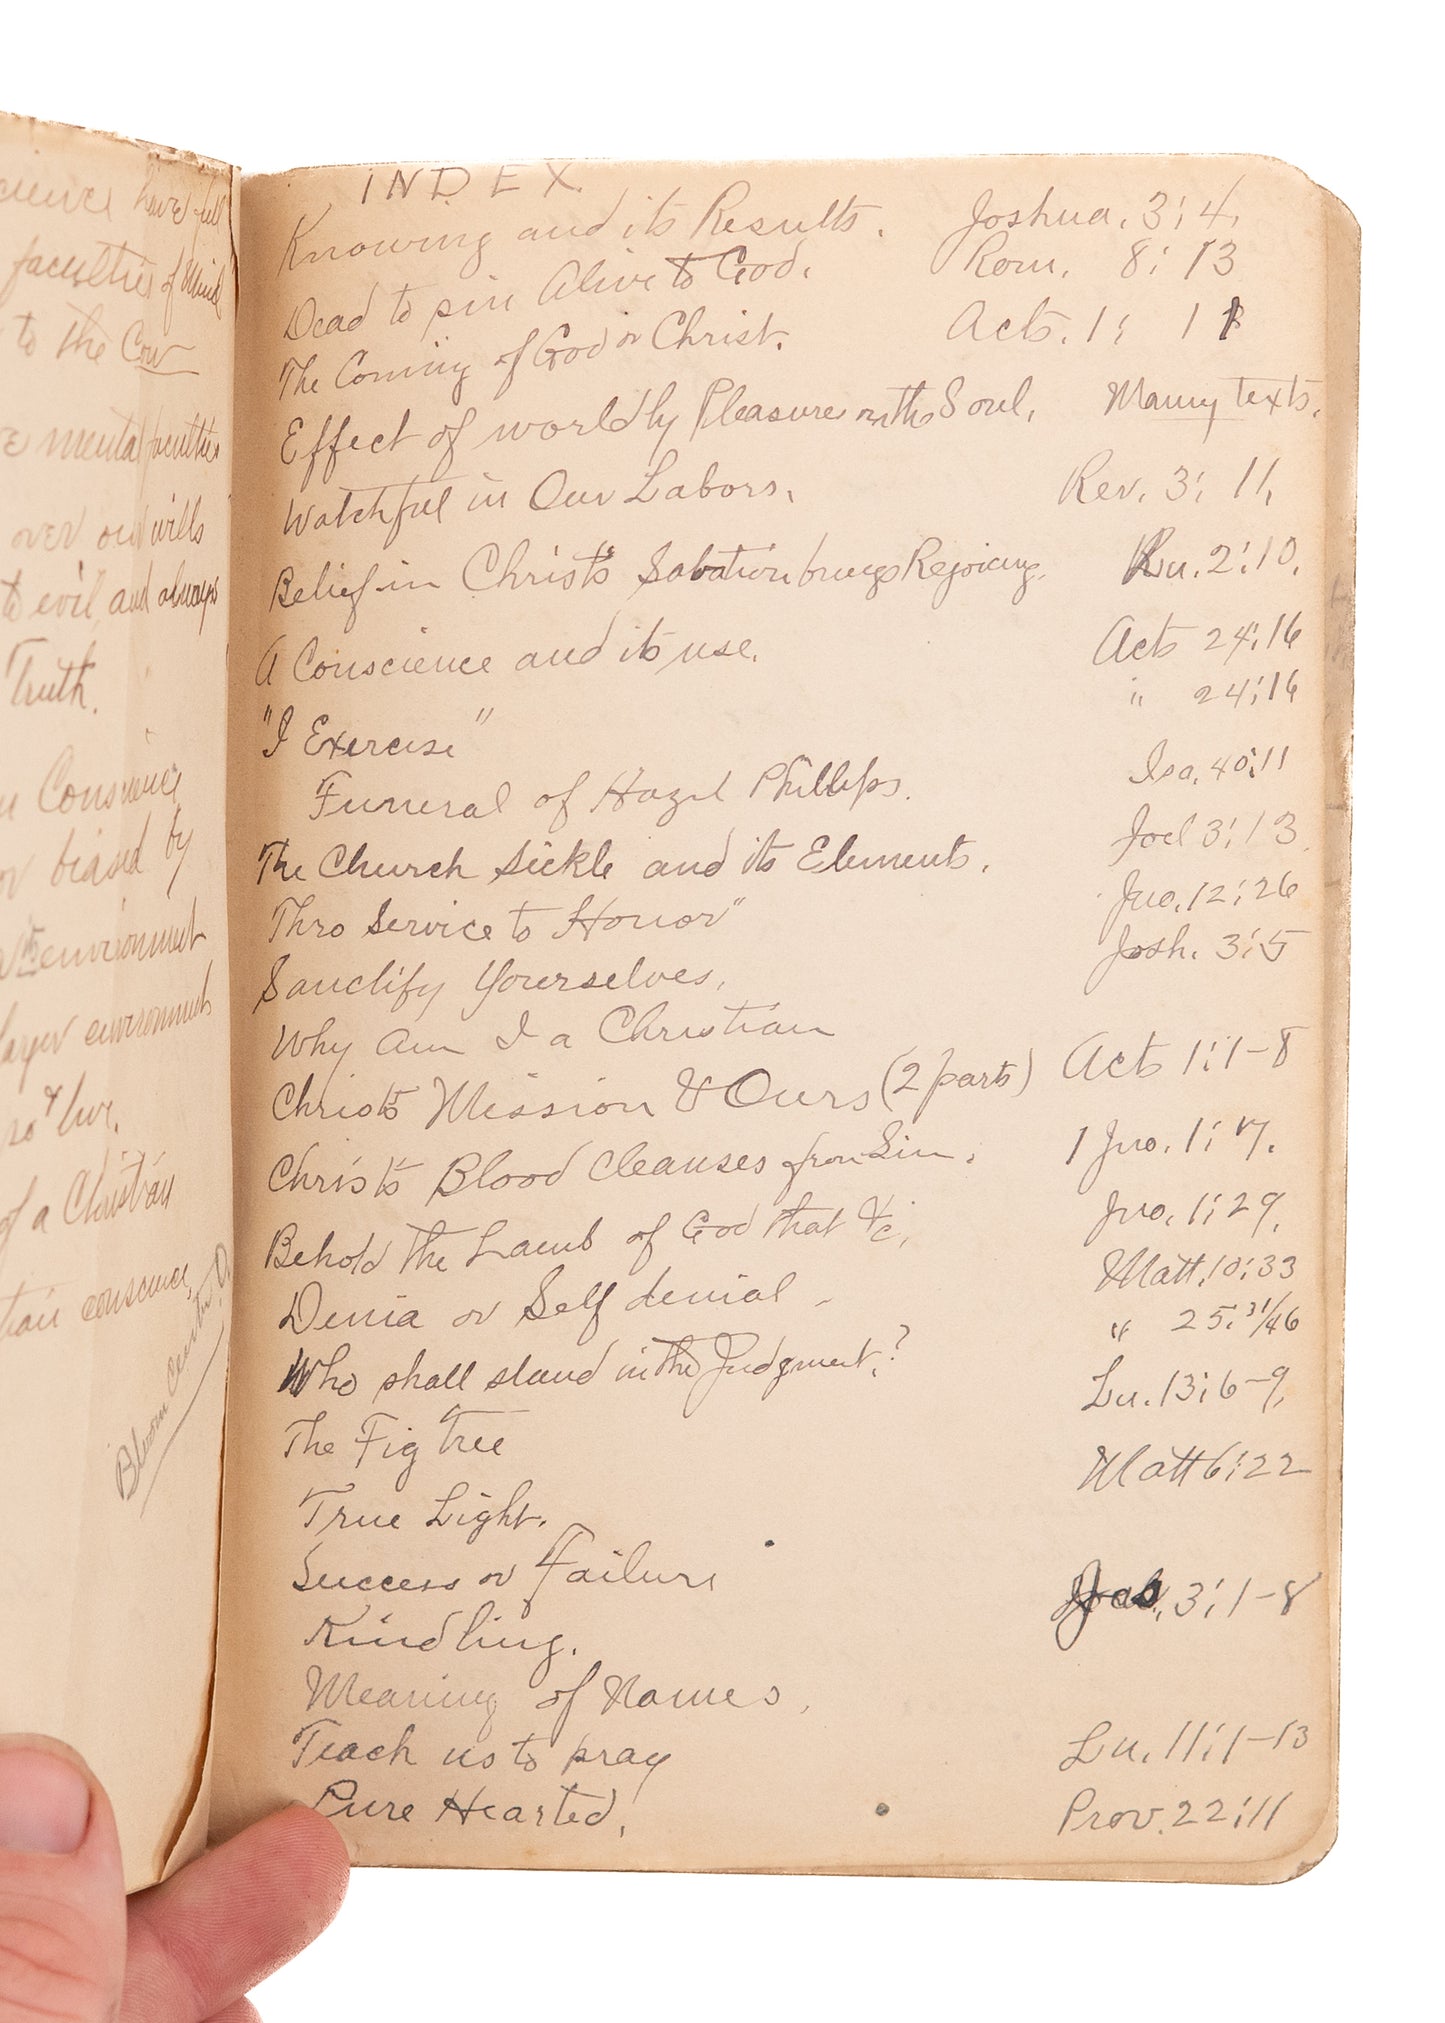 cience have full
faculties of Mind
to the Cow
e mental faculties
over our wills
to evil, and always
Truth.
Conscience
or biased by
environment
larger environments
so & live.
of a Christian
conscience,
Bloom Center O.
INDEX
Knowing and its Results. Joshua. 3:4.
Dead to sin Alive to God. Rom. 8:13
The Coming of God or Christ. Acts. 1: 11
Effect of worldly Pleasure on the Soul. Many texts.
Watchful in Our Labors. Rev. 3: 11.
Belief in Christ's Salvation brings Rejoicing. Lu. 2:10.
A Conscience and its use. Acts 24:16
"I Exercise" " 24:16
Funeral of Hazel Phillips. Isa. 40:11
The Church Sickle and its Elements. Joel 3:13.
Thro Service to Honor" Jno. 12:26
Sanctify Yourselves. Josh. 3:5
Why Am I a Christian
Christ's Mission & Ours (2 parts) Acts 1:1-8
Christ's Blood Cleanses from Sin. 1 Jno. 1:7.
Behold the Lamb of God that &c. Jno. 1:29.
Denia or Self denial - Matt. 10:33
Who shall stand in the Judgment.? " 25:31/46
The Fig Tree Lu. 13:6-9.
True Light. Matt 6:22
Success or Failure
Kindling. Jas. 3:1-8
Meaning of Names.
Teach us to pray Lu. 11:1-13
Pure Hearted. Prov. 22:11